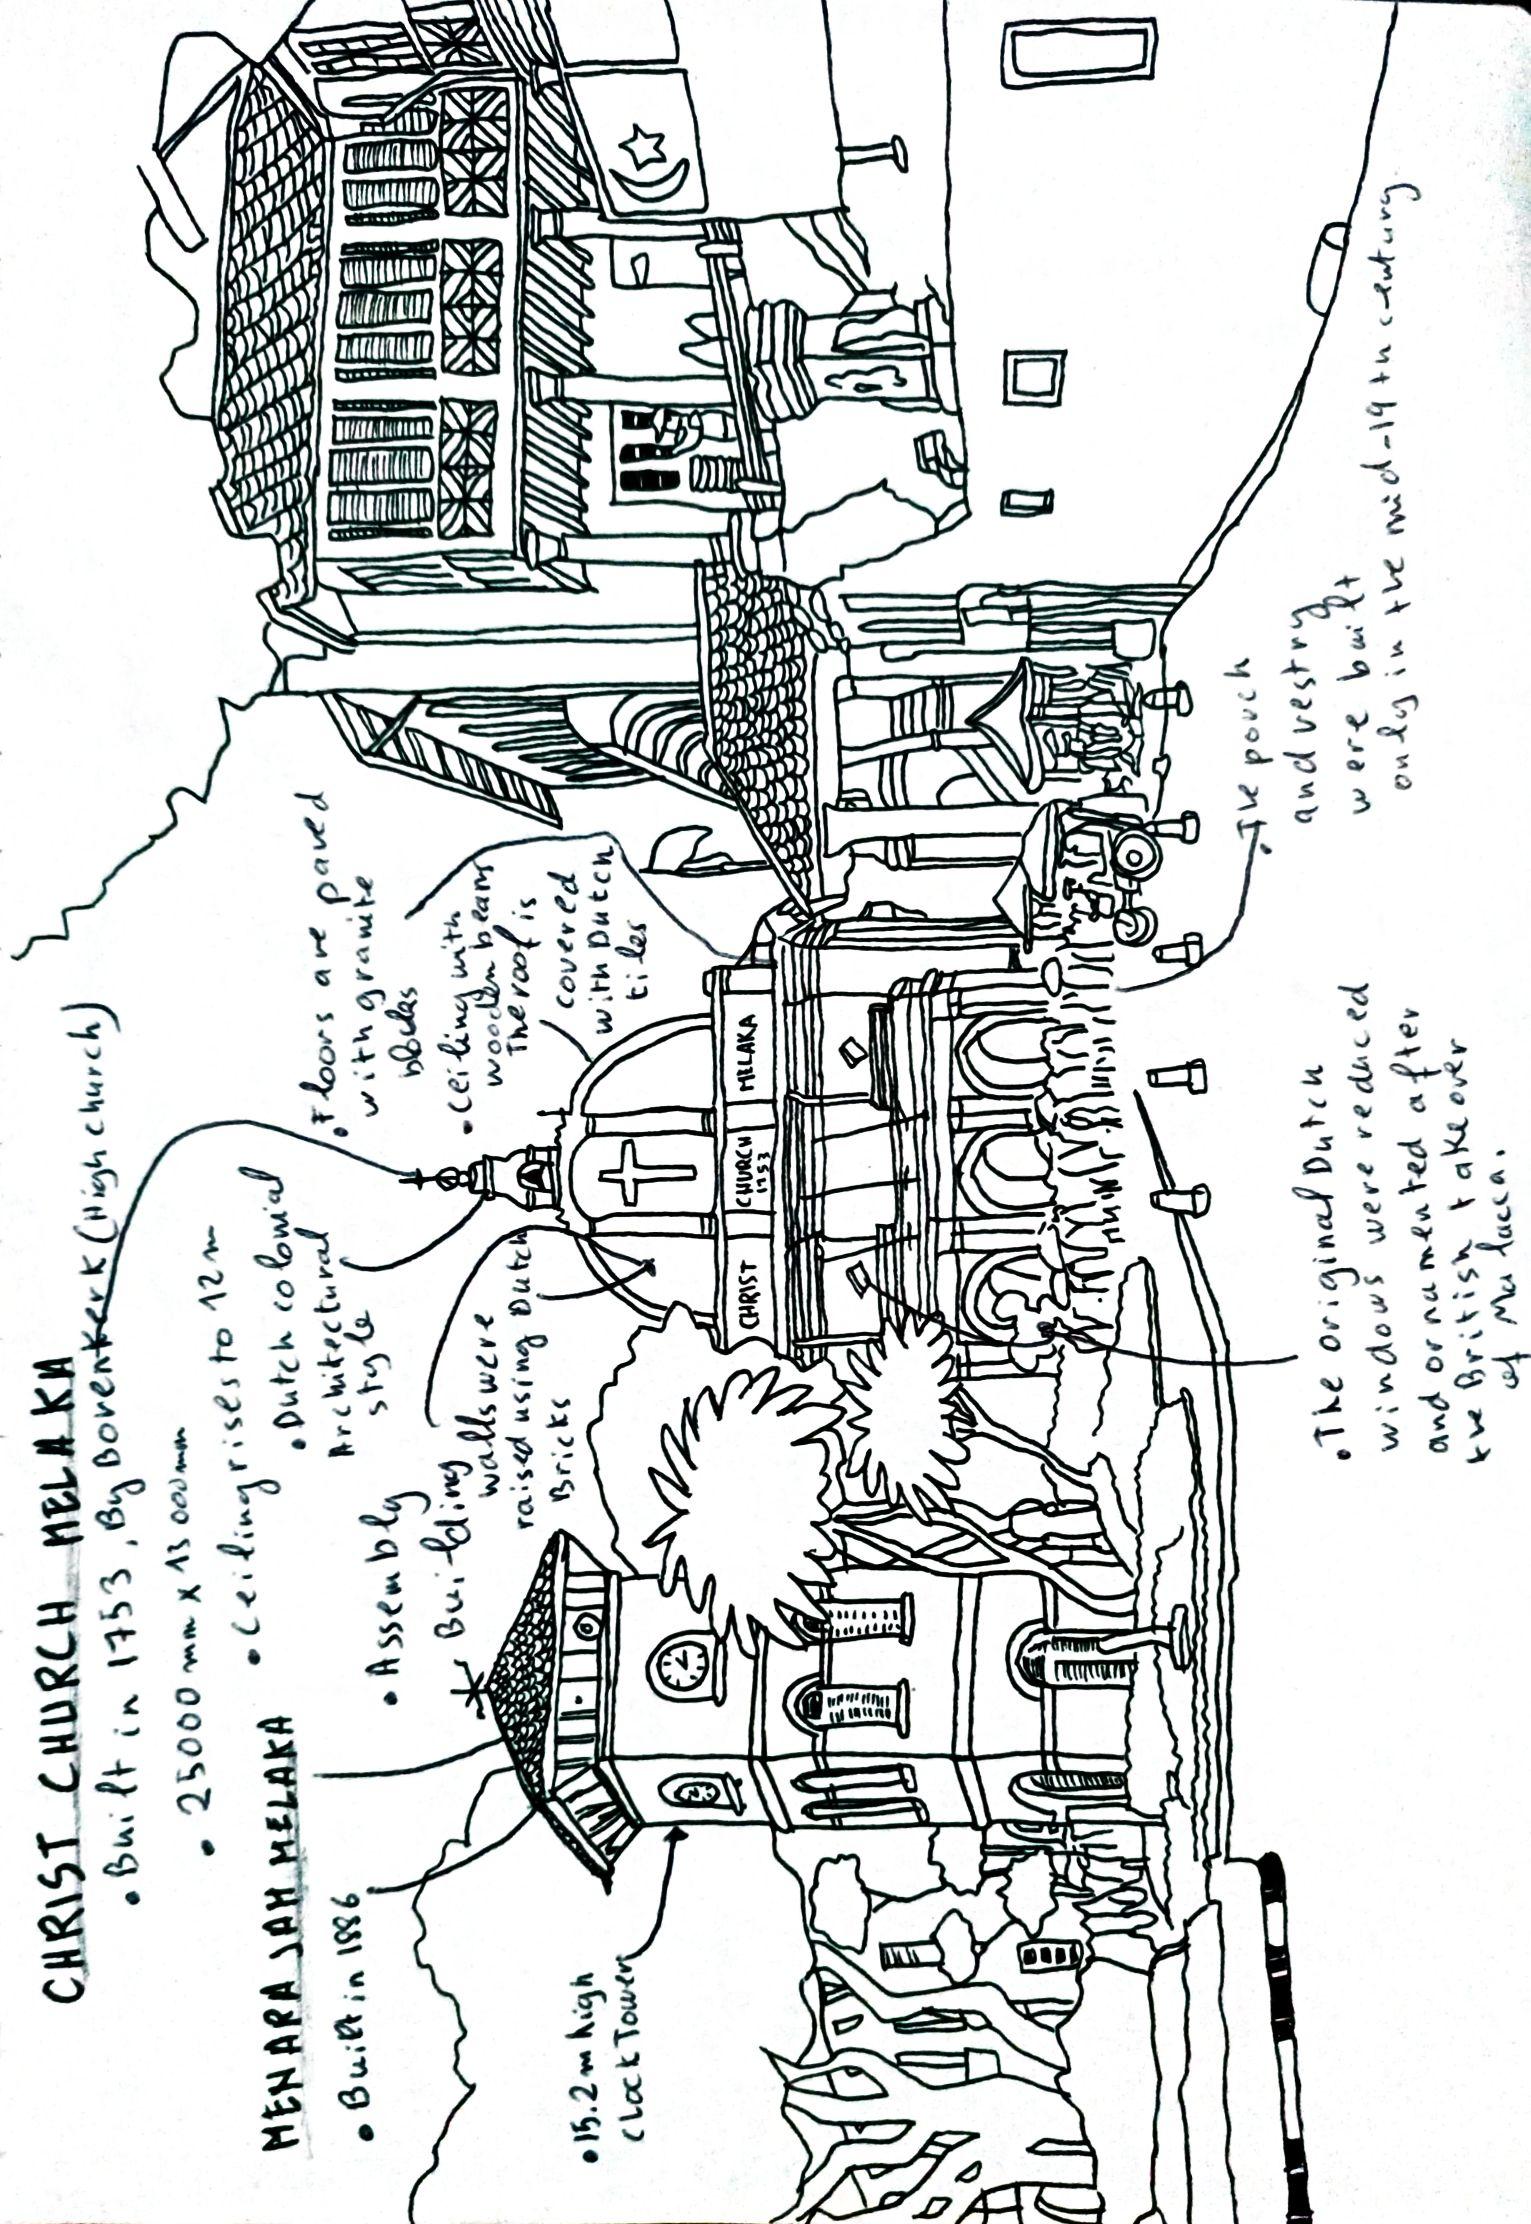 CHRIST CHURCH MELAKA
• Built in 1753, By Bovenkerk (High church)
• 25000 mm x 13000mm
• Ceiling rises to 12m
• Dutch colonial
Architectural
style
• Floors are paved
with granite
blocks
• Ceiling with
wooden beams
The roof is
covered
with Dutch
tiles
• Assembly
Building
walls were
raised using Dutch
Bricks
MENARA JAM MELAKA
• Built in 1886
• 15.2m high
Clock Tower
CHRIST CHURCH MELAKA
1753
• The original Dutch
windows were reduced
and ornamented after
the British take over
of Malacca.
• The pouch
and vestry
were built
only in the mid-19th century.